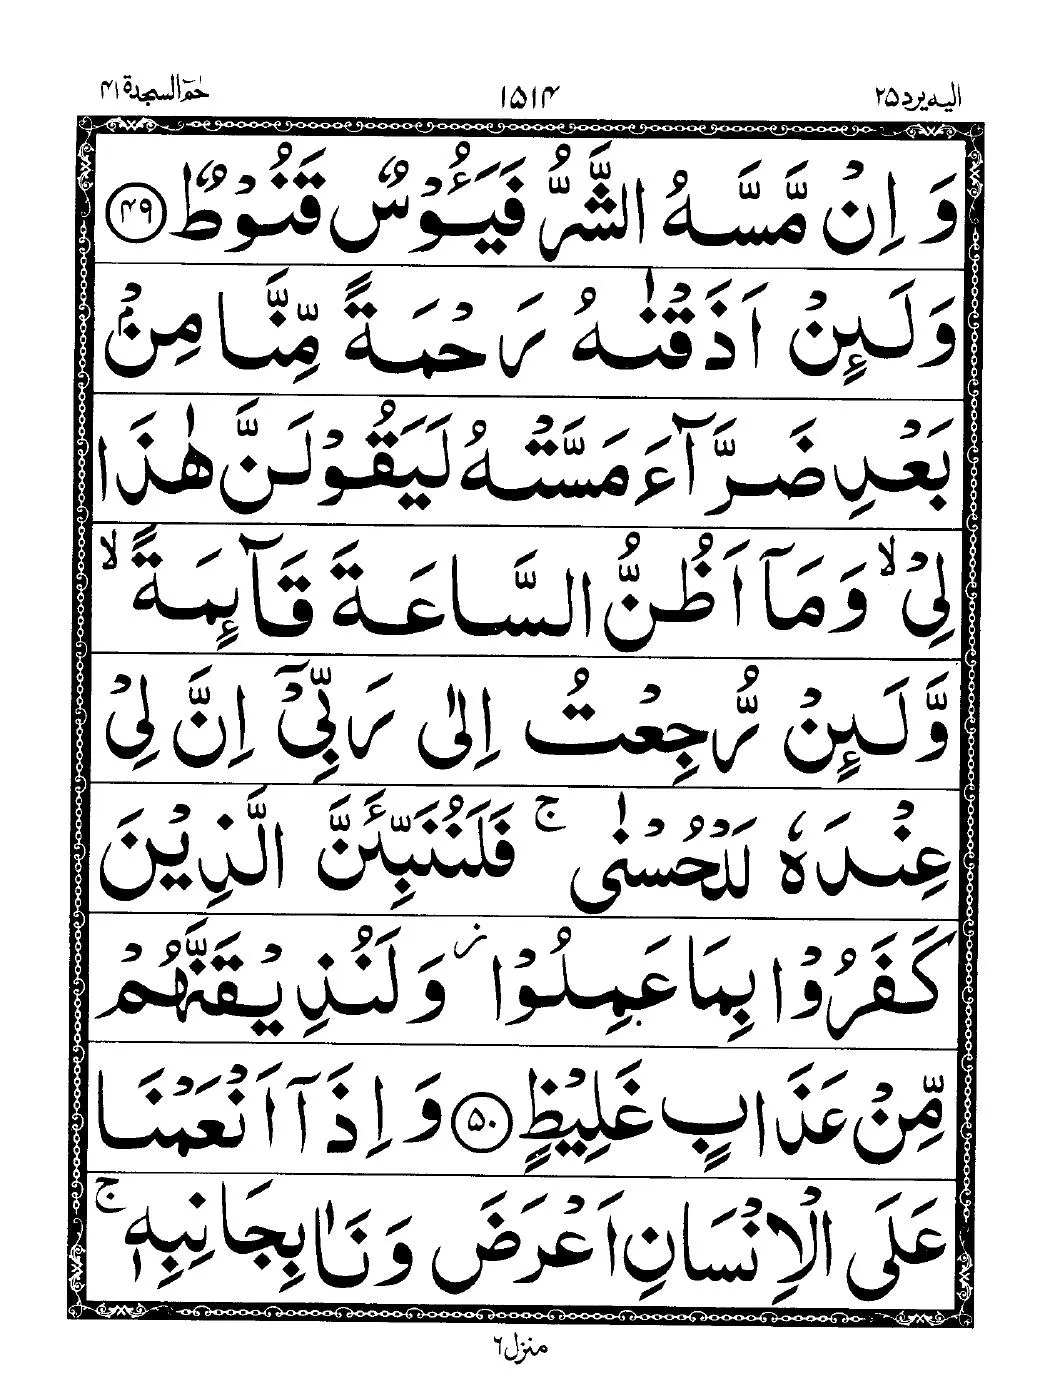 الیه یرد ۲۵ ۱۵۱۴ حٰمٓ السجدة ۴۱
وَ اِنْ مَّسَّهُ الشَّرُّ فَيَـُٔوْسٌ قَنُوْطٌ ﴿۴۹﴾
وَلَىِٕنْ اَذَقْنٰهُ رَحْمَةً مِّنَّا مِنْۢ
بَعْدِ ضَرَّآءَ مَسَّتْهُ لَيَقُوْلَنَّ هٰذَا
لِيْ ۙ وَمَآ اَظُنُّ السَّاعَةَ قَآىِٕمَةً ۙ
وَّلَىِٕنْ رُّجِعْتُ اِلٰى رَبِّيْٓ اِنَّ لِيْ
عِنْدَهٗ لَلْحُسْنٰى ۚ فَلَنُنَبِّئَنَّ الَّذِيْنَ
كَفَرُوْا بِمَا عَمِلُوْا ز وَلَنُذِيْقَنَّهُمْ
مِّنْ عَذَابٍ غَلِيْظٍ ﴿۵۰﴾ وَ اِذَآ اَنْعَمْنَا
عَلَى الْاِنْسَانِ اَعْرَضَ وَنَاٰ بِجَانِبِهٖ ۚ
منزل ۶